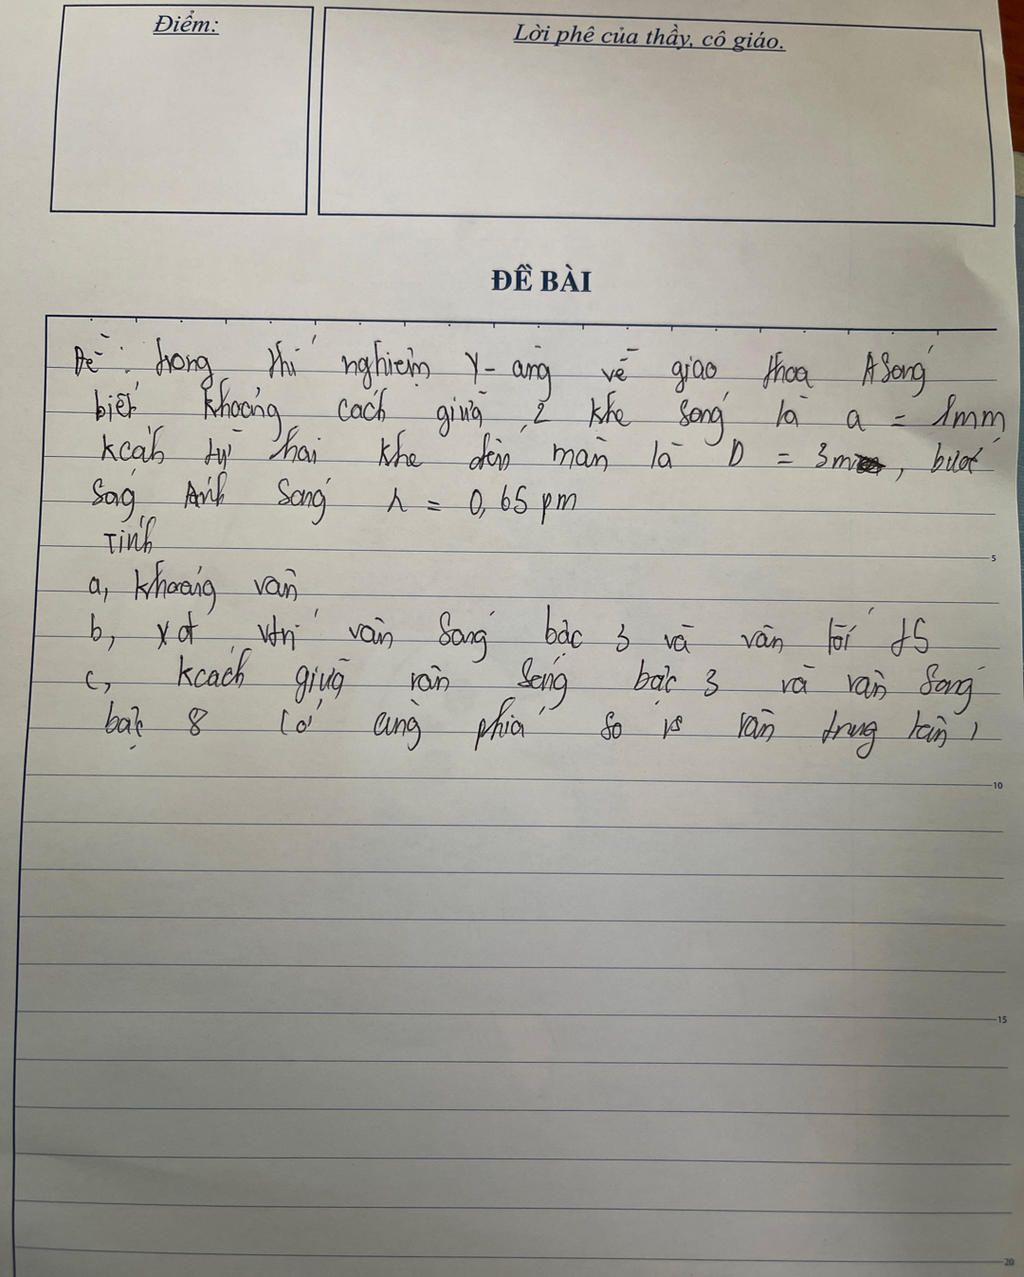 Điểm:
Lời phê của thầy, cô giáo.
ĐỀ BÀI
Đề: trong thí nghiệm Y-âng về giao thoa ASáng
biết khoảng cách giữa 2 khe sáng là a = 1mm
kcách từ hai khe đến màn là D = 3m, bước
sóg Ánh Sáng λ = 0,65 μm
5
Tính
a, khoảng vân
b, xđ vtrí vân Sáng bậc 3 và vân tối t5
c, kcách giữa vân Sáng bậc 3 và vân Sáng
bậc 8 (ở cùng phía so vs vân trung tâm)
10
15
20